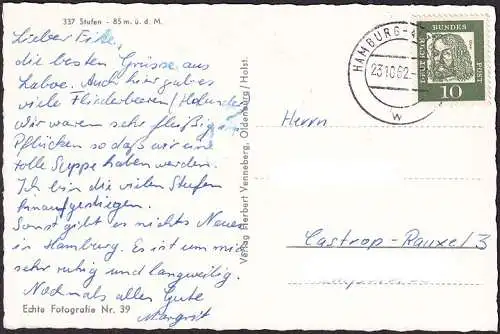 337 Stufen - 85 m. ü. d. M.
Lieber Eike,
die besten Grüsse aus
Laboe. Auch hier gab es
viele Fliederbeeren / Holunder
Wir waren sehr fleißig am
Pflücken so daß wir eine
tolle Suppe haben werden.
Ich bin die vielen Stufen
hinaufgestiegen.
Sonst gibt es nichts Neues
in Hamburg. Es ist um mich
sehr ruhig und langweilig.
Nochmals alles Gute
Margrit
Echte Fotografie Nr. 39
Verlag Herbert Venneberg, Oldenburg / Holst.
HAMBURG-4
23.10.62
w
DEUTSCHE BUNDESPOST
10
Herrn
Castrop-Rauxel/3